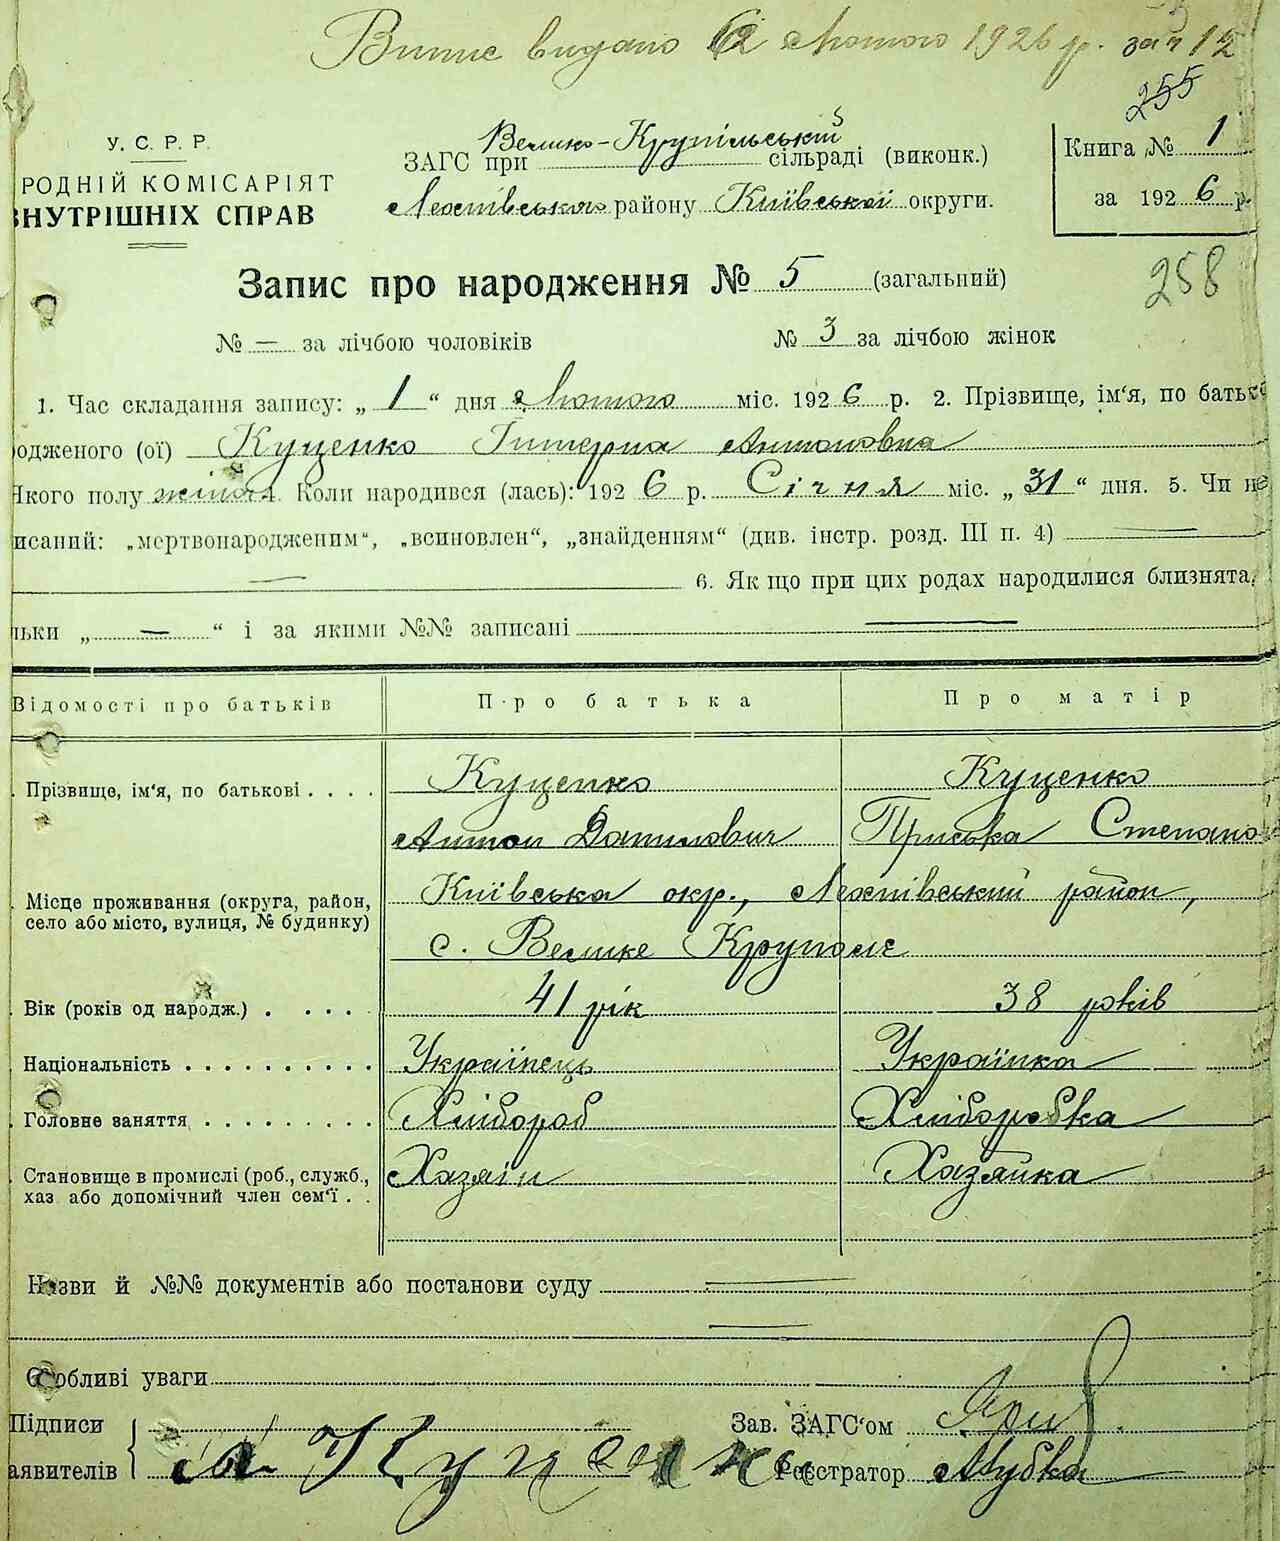 Випис видано 12 лютого 1926 р. за ч 12
255
У. С. Р. Р.
РОДНІЙ КОМІСАРІЯТ
ВНУТРІШНІХ СПРАВ
ЗАГС при Велико-Крупільській сільраді (виконк.)
району Київської округи.
Книга № 1
за 1926 р.
258
Запис про народження № 5 (загальний)
№ — за лічбою чоловіків № 3 за лічбою жінок
1. Час складання запису: „1“ дня лютого міс. 1926 р. 2. Прізвище, ім‘я, по батьк
родженого (ої) Куценко Антоновна
Якого полу жіноч. Коли народився (лась): 1926 р. Січня міс. „31“ дня. 5. Чи не
исаний: „мертвонародженим“, „всиновлен“, „знайденням“ (див. інстр. розд. III п. 4) —
— 6. Як що при цих родах народилися близнята,
льки „—“ і за якими №№ записані —
Відомості про батьків Про батька Про матір
Прізвище, ім‘я, по батькові . . . . Куценко Куценко
Антон Данилович Приська Степано
Місце проживання (округа, район, село або місто, вулиця, № будинку) Київська окр., район,
с. Велике Круполе
Вік (років од народж.) . . . . . 41 рік 38 років
Національність . . . . . . . . . . Українець Українка
Головне заняття . . . . . . . . . Хлібороб Хліборобка
Становище в промислі (роб., служб., хаз або допомічний член сем‘ї . . Хазяїн Хазяйка
Назви й №№ документів або постанови суду —
—
Особливі уваги
Підписи
аявителів
А Куценко
Зав. ЗАГС‘ом
Реєстратор